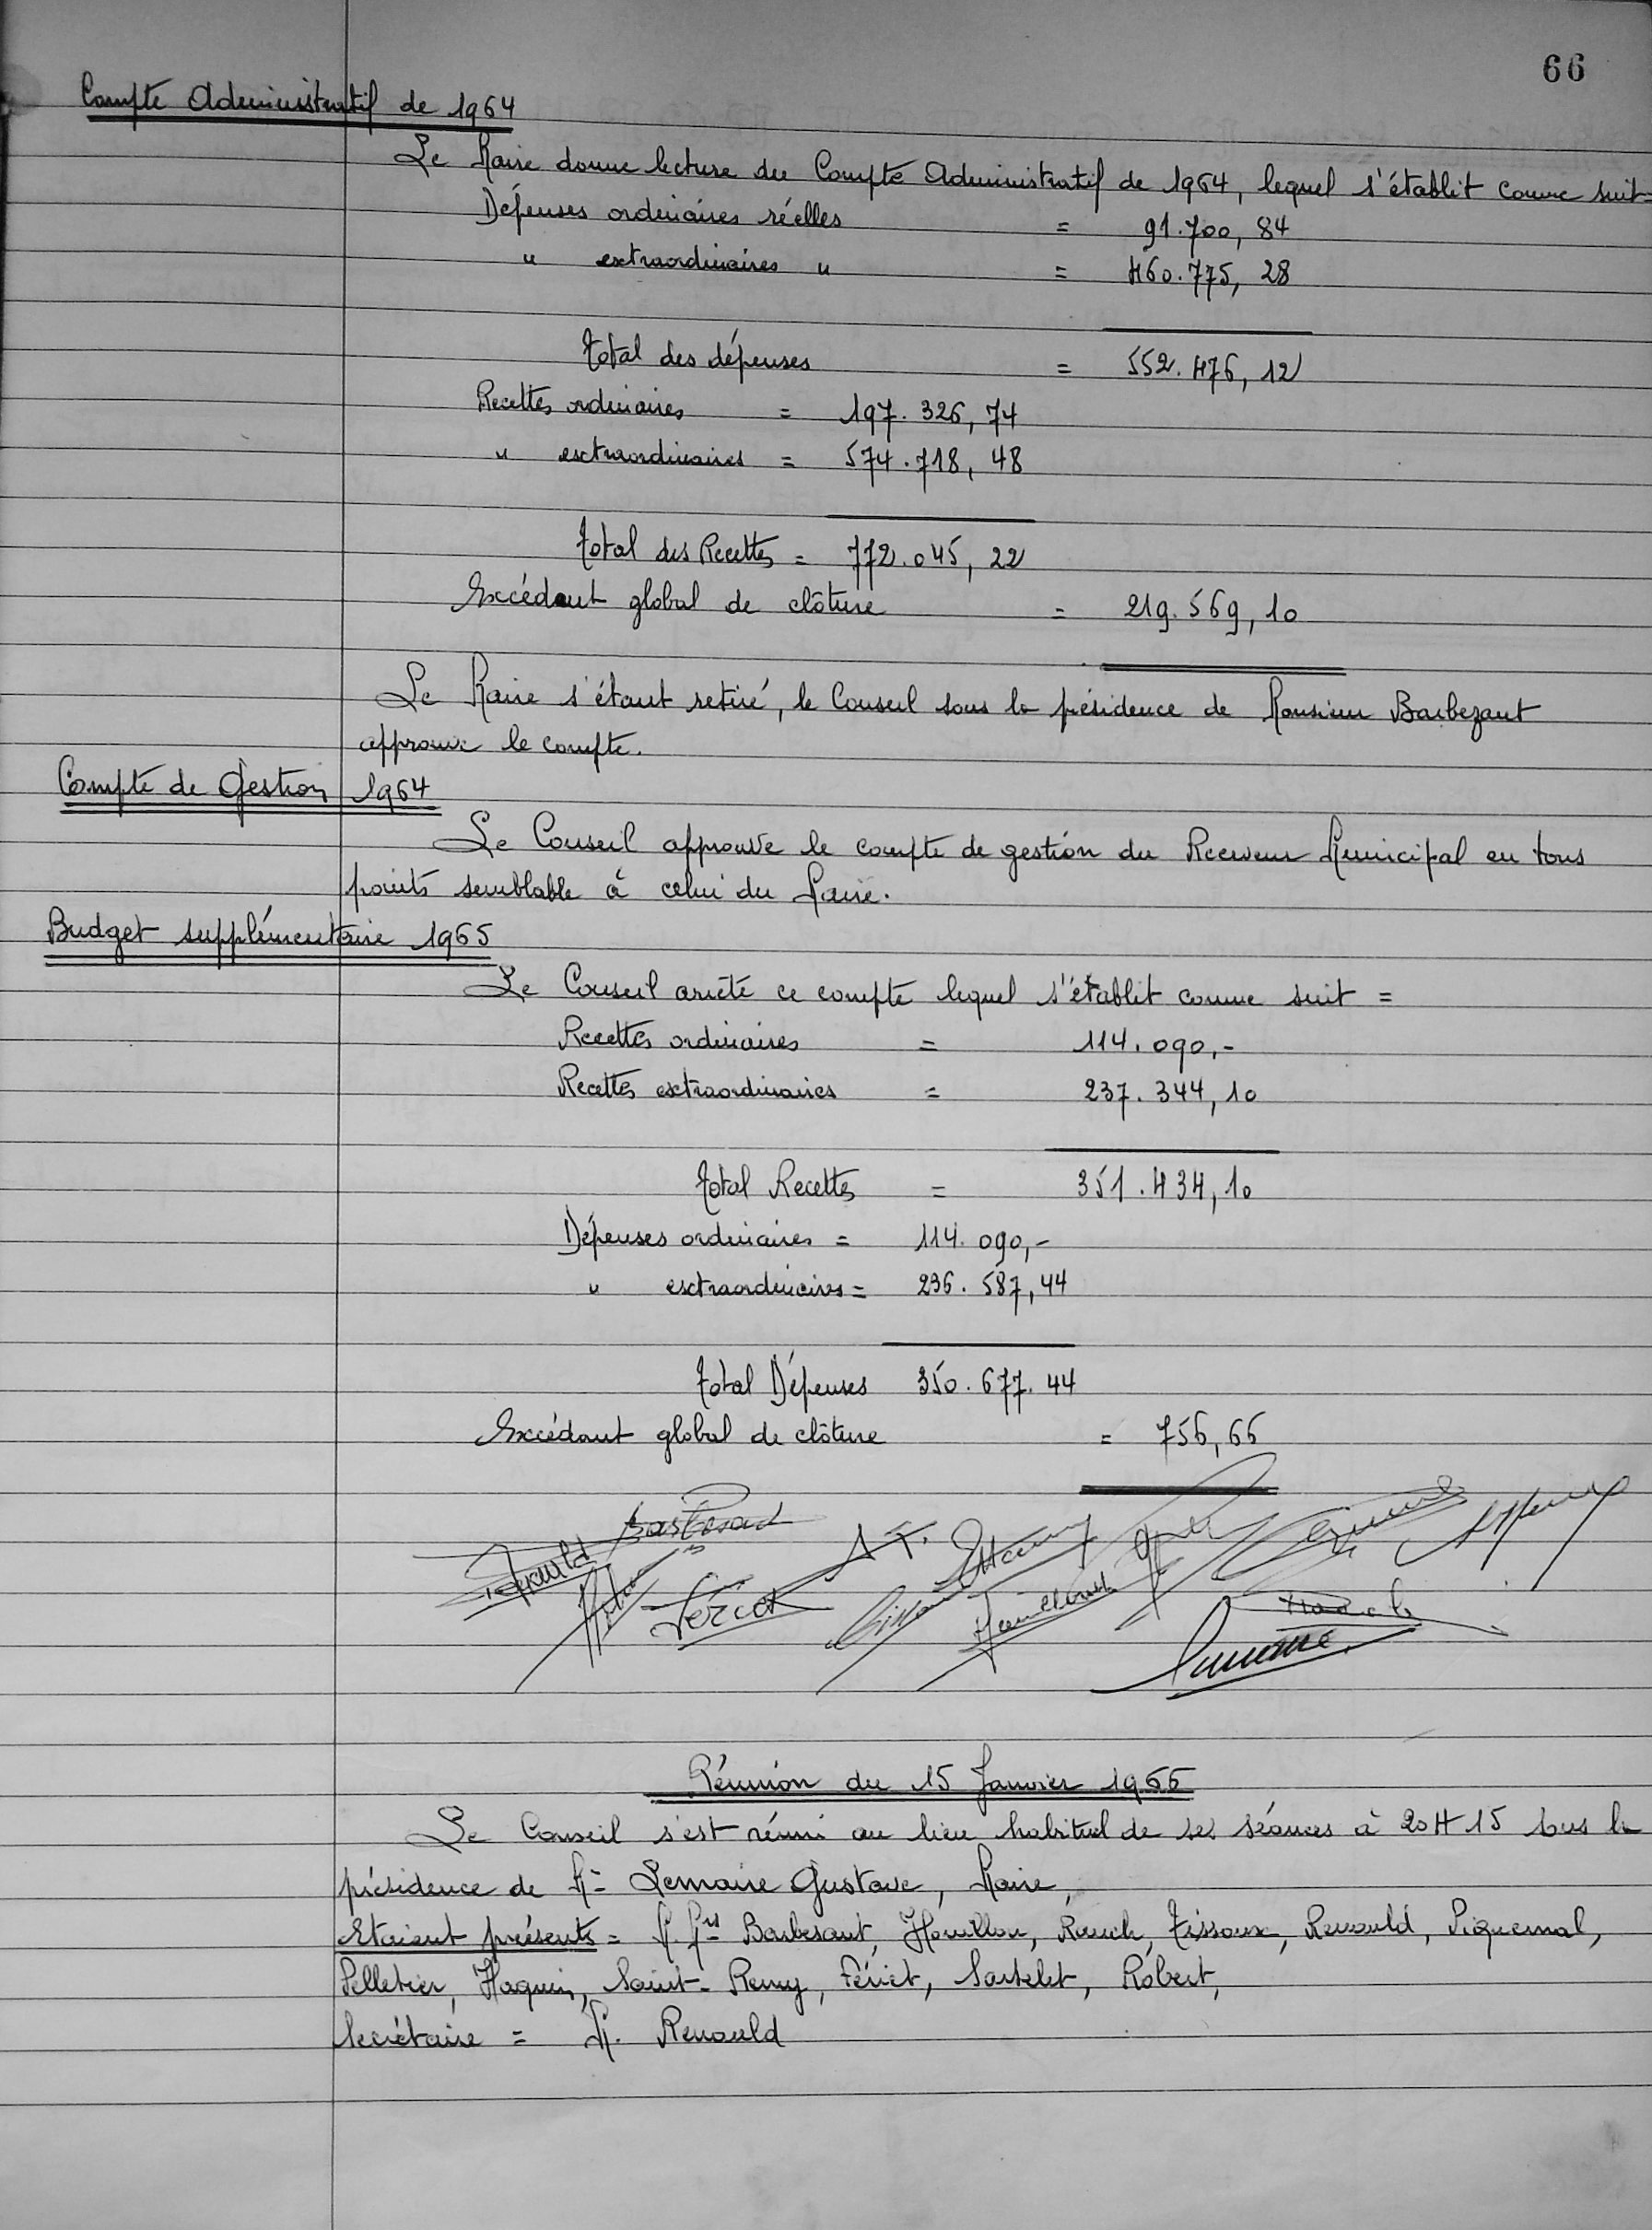 66
Compte Administratif de 1964
Le Maire donne lecture du Compte Administratif de 1964, lequel s'établit comme suit=
Dépenses ordinaires réelles = 91.700,84
" extraordinaires " = 460.775,28
Total des dépenses = 552.476,12
Recettes ordinaires = 197.326,74
" extraordinaires = 574.718,48
Total des Recettes = 772.045,22
Excédant global de clôture = 219.569,10
Le Maire s'étant retiré, le Conseil sous la présidence de Monsieur Barbezant
approuve le compte.
Compte de Gestion 1964
Le Conseil approuve le compte de gestion du Receveur Municipal en tous
points semblable à celui du Maire.
Budget supplémentaire 1965
Le Conseil arrête ce compte lequel s'établit comme suit =
Recettes ordinaires = 114.090,-
Recettes extraordinaires = 237.344,10
Total Recettes = 351.434,10
Dépenses ordinaires = 114.090,-
" extraordinaires = 236.587,44
Total Dépenses 350.677.44
Excédant global de clôture = 756,66
Renauld
Fériet
Lemaire
Réunion du 15 Janvier 1966
Le Conseil s'est réuni au lieu habituel de ses séances à 20H15 sous la
présidence de Mr Lemaire Gustave, Maire,
Etaient présents = M.Mrs Barbesant, Houillon, Rauch, Tissoux, Renauld, Piquemal,
Pelletier, Haquin, Saint-Remy, Fériet, Sartelet, Robert,
Secrétaire = M. Renauld